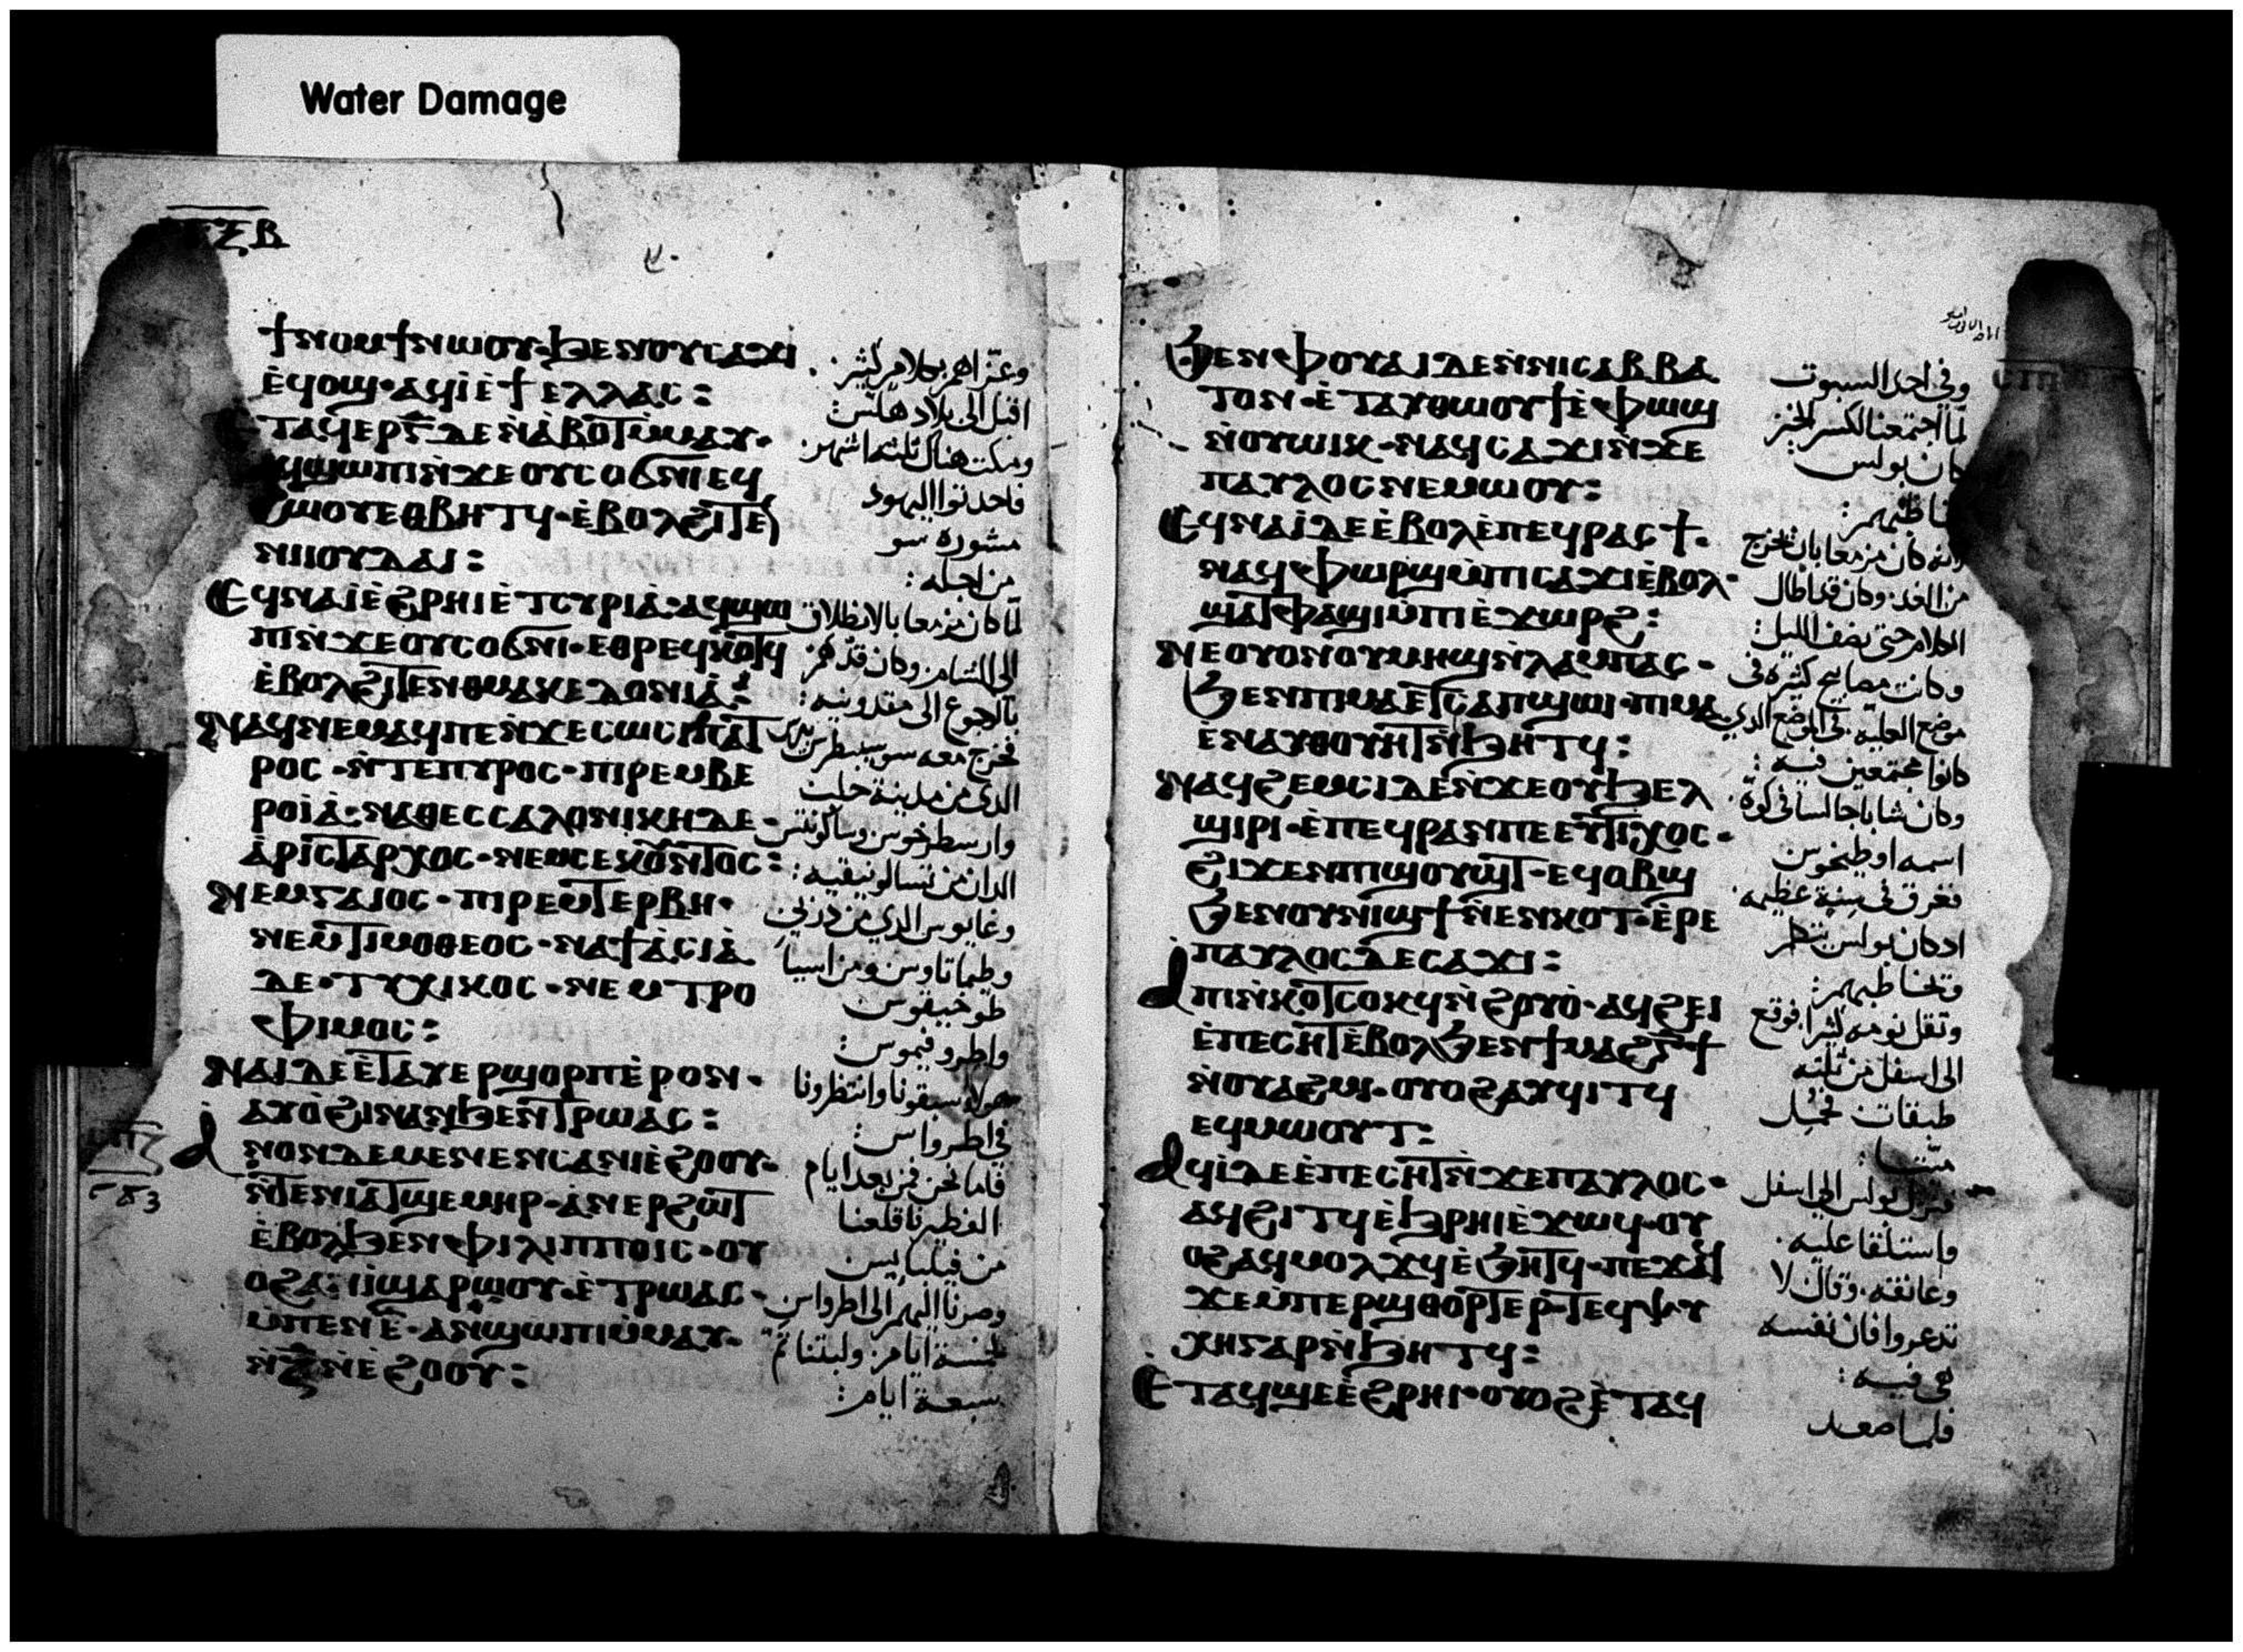 Water Damage
ⲝⲃ
ϯⲛⲟⲙϯⲛⲱⲟⲩ·ϧⲉⲛⲟⲩⲥⲁϫⲓ
ⲉ̀ϥⲟϣ·ⲁϥⲓ̀ⲉ̀ϯⲉⲗⲗⲁⲥ:
ⲧⲁϥⲉⲣⲅ̅ⲇⲉⲛ̀ⲁ̀ⲃⲟⲧⲙ̀ⲙⲁⲩ·
ϥϣⲱⲡⲓⲛ̀ϫⲉⲟⲩⲥⲟϭⲛⲓⲉϥ
ϩⲱⲟⲩⲉⲑⲃⲏⲧϥ·ⲉ̀ⲃⲟⲗϩⲓⲧⲉ
ⲛⲛⲓⲟⲩⲇⲁⲓ:
ⲉϥⲛⲁⲓ̀ⲉ̀ϩⲣⲏⲓⲉ̀ⲧⲥⲩⲣⲓⲁ̀·ⲁϥϣⲱ
ⲡⲓⲛ̀ϫⲉⲟⲩⲥⲟϭⲛⲓ·ⲉⲑⲣⲉϥⲕⲟⲧϥ
ⲉ̀ⲃⲟⲗϩⲓⲧⲉⲛⲑⲙⲁⲕⲉⲇⲟⲛⲓⲁ̀:
ⲛⲁϥⲛⲉⲙⲁϥⲡⲉⲛ̀ϫⲉⲥⲱⲥⲓⲡⲁⲧ
ⲣⲟⲥ·ⲛ̀ⲧⲉⲡⲩⲣⲟⲥ·ⲡⲓⲣⲉⲙⲃⲉ
ⲣⲟⲓⲁ̀·ⲛⲁⲑⲉⲥⲥⲁⲗⲟⲛⲓⲕⲏⲇⲉ·
ⲁ̀ⲣⲓⲥⲧⲁⲣⲭⲟⲥ·ⲛⲉⲙⲥⲉⲕⲟⲛⲧⲟⲥ:
ⲛⲉⲙⲅⲁⲓⲟⲥ·ⲡⲓⲣⲉⲙⲧⲉⲣⲃⲏ·
ⲛⲉⲙⲧⲓⲙⲟⲑⲉⲟⲥ·ⲛⲁϯⲁ̀ⲥⲓⲁ̀
ⲇⲉ·ⲧⲩⲭⲓⲕⲟⲥ·ⲛⲉⲙⲧⲣⲟ
ⲫⲓⲙⲟⲥ:
ⲛⲁⲓⲇⲉⲉ̀ⲧⲁⲩⲉⲣϣⲟⲣⲡⲉ̀ⲣⲟⲛ·
ⲁⲩⲟ̀ϩⲓⲙⲁⲛϧⲉⲛⲧⲣⲱⲁⲥ:
ⲁⲛⲟⲛⲇⲉⲙⲉⲛⲉⲛⲥⲁⲛⲓⲉ̀ϩⲟⲟⲩ·
ⲛ̀ⲧⲉⲛⲓⲁⲧϣⲉⲙⲏⲣ·ⲁ̀ⲛⲉⲣϩⲱⲧ
ⲉ̀ⲃⲟⲗϧⲉⲛⲫⲓⲗⲓⲡⲡⲟⲓⲥ·ⲟⲩ
ⲟϩⲁⲛⲓ̀ϣⲁⲣⲱⲟⲩ·ⲉ̀ⲧⲣⲱⲁⲥ·
ⲙ̀ⲡⲉⲛⲉ̅·ⲁⲛϣⲱⲡⲓⲙ̀ⲙⲁⲩ·
ⲛ̀ⲍ̅ⲛ̀ⲉ̀ϩⲟⲟⲩ:
وعزاهم بكلام كثير
اقبل الى بلاد هلس
ومكث هناك ثلثه اشهر
فاحدثوا اليهود
مشوره سو
من اجله:
لما كان مزمعا بالانطلاق
الى الشام وكان قد هم
بالرجوع الى مقدونيه:
فخرج معه سوسيبطرس
الذي من مدينة حلب
وارسطرخوس وساكوندس
اللذان من تسالونيقيه:
وغايوس الذي من دربي
وطيماتاوس ومن اسيا
طوخيقوس
واطروفيموس:
هولا سبقونا وانتظرونا
في اطرواس:
فاما نحن فمن بعد ايام
الفطير فاقلعنا
من فيلبايس
وصرنا اليهم الى اطرواس
خمسة ايام ولبثنا ثم
سبعة ايام:
ϧⲉⲛⲫⲟⲩⲁⲓⲇⲉⲛ̀ⲛⲓⲥⲁⲃⲃⲁ
ⲧⲟⲛ·ⲉ̀ⲧⲁⲩⲑⲱⲟⲩϯⲉ̀ⲫⲱϣ
ⲛ̀ⲟⲩⲱⲓⲕ·ⲛⲁϥⲥⲁϫⲓⲛ̀ϫⲉ
ⲡⲁⲩⲗⲟⲥⲛⲉⲙⲱⲟⲩ:
ⲉϥⲛⲁⲓ̀ⲇⲉⲉ̀ⲃⲟⲗⲉ̀ⲡⲉϥⲣⲁⲥϯ·
ⲛⲁϥⲫⲱⲣϣⲙ̀ⲡⲓⲥⲁϫⲓⲉ̀ⲃⲟⲗ·
ϣⲁⲧⲫⲁϣⲓⲙ̀ⲡⲓⲉ̀ϫⲱⲣϩ:
ⲛⲉⲟⲩⲟⲛⲟⲩⲙⲏϣⲛ̀ⲗⲁⲙⲡⲁⲥ·
ϧⲉⲛⲡⲓⲙⲁⲉⲧⲥⲁⲡϣⲱⲓ·ⲡⲓⲙⲁ
ⲉ̀ⲛⲁⲩⲑⲟⲩⲏⲧⲛ̀ϧⲏⲧϥ:
ⲛⲁϥϩⲉⲙⲥⲓⲇⲉⲛ̀ϫⲉⲟⲩϧⲉⲗ
ϣⲓⲣⲓ·ⲉ̀ⲡⲉϥⲣⲁⲛⲡⲉⲉⲩⲧⲓⲭⲟⲥ·
ϩⲓϫⲉⲛⲡⲓϣⲟⲩϣⲧ·ⲉϥⲟⲃϣ
ϧⲉⲛⲟⲩⲛⲓϣϯⲛ̀ⲉⲛⲕⲟⲧ·ⲉ̀ⲣⲉ
ⲡⲁⲩⲗⲟⲥⲇⲉⲥⲁϫⲓ:
ⲁⲡⲓⲛ̀ⲕⲟⲧⲥⲟⲕϥⲛ̀ϩⲟⲩⲟ̀·ⲁϥϩⲉⲓ
ⲉ̀ⲡⲉⲥⲏⲧⲉ̀ⲃⲟⲗϧⲉⲛϯⲙⲁϩⲅ̅ϯ
ⲛ̀ⲟⲩⲁϩⲙⲓ·ⲟⲩⲟϩⲁⲩϥⲓⲧϥ
ⲉϥⲙⲱⲟⲩⲧ:
ⲁϥⲓ̀ⲇⲉⲉ̀ⲡⲉⲥⲏⲧⲛ̀ϫⲉⲡⲁⲩⲗⲟⲥ·
ⲁϥϩⲓⲧϥⲉ̀ϧⲣⲏⲓⲉ̀ϫⲱϥ·ⲟⲩ
ⲟϩⲁϥⲙⲟⲗϫϥⲉ̀ϧⲏⲧϥ·ⲡⲉϫⲁϥ
ϫⲉⲙ̀ⲡⲉⲣϣⲑⲟⲣⲧⲉⲣ·ⲧⲉϥⲯⲩ
ⲭⲏⲅⲁⲣⲛ̀ϧⲏⲧϥ:
ⲉ̀ⲧⲁϥϣⲉⲉ̀ϩⲣⲏⲓ·ⲟⲩⲟϩⲉ̀ⲧⲁϥ
وفي احد السبوت
لما اجتمعنا لكسر الخبز
كان بولس
لانه كان مزمعا بان يخرج
من الغد وكان قد اطال
الكلام حتى نصف الليل:
وكانت مصابيح كثيره في
موضع العليه في الموضع الذي
كانوا مجتمعين فيه:
وكان شابا جالسا في كوة
اسمه اوطيخوس
فغرق في سنة عظيمه
اذ كان بولس
وثقل نومه كثيرا فوقع
الى اسفل من ثلثه
طبقات فحمل
ميتا:
فنزل بولس الى اسفل
واستلقا عليه
وعانقه وقال لا
تذعروا فان نفسه
هي فيه:
فلما صعد